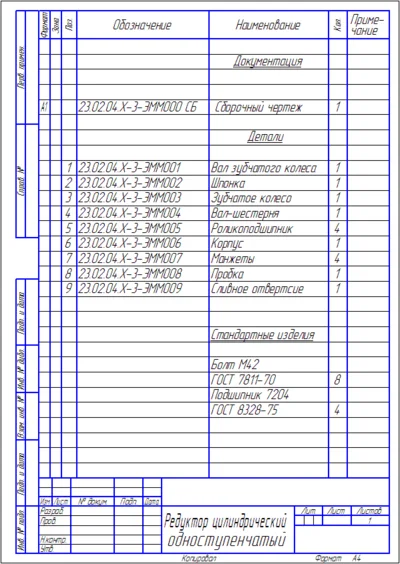 Формат
Зона
Поз
Обозначение
Наименование
Кол
Приме-
чание
Перв. примен
Документация
А1 23.02.04.Х-3-ЭММ000 СБ Сборочный чертеж 1
Детали
Справ. №
1 23.02.04.Х-3-ЭММ001 Вал зубчатого колеса 1
2 23.02.04.Х-3-ЭММ002 Шпонка 1
3 23.02.04.Х-3-ЭММ003 Зубчатое колесо 1
4 23.02.04.Х-3-ЭММ004 Вал-шестерня 1
5 23.02.04.Х-3-ЭММ005 Роликоподшипник 4
6 23.02.04.Х-3-ЭММ006 Корпус 1
7 23.02.04.Х-3-ЭММ007 Манжеты 4
8 23.02.04.Х-3-ЭММ008 Пробка 1
9 23.02.04.Х-3-ЭММ009 Сливное отвертсие 1
Подп и дата
Стандартные изделия
Инв № дубл
Болт М42
ГОСТ 7811-70 8
Подшипник 7204
ГОСТ 8328-75 4
Взам инв №
Подп и дата
Инв № подл
Изм Лист № докум Подп Дата
Разраб
Пров
Н.контр.
Утв
Редуктор цилиндрический
одноступенчатый
Лит Лист Листов
1
Копировал Формат А4